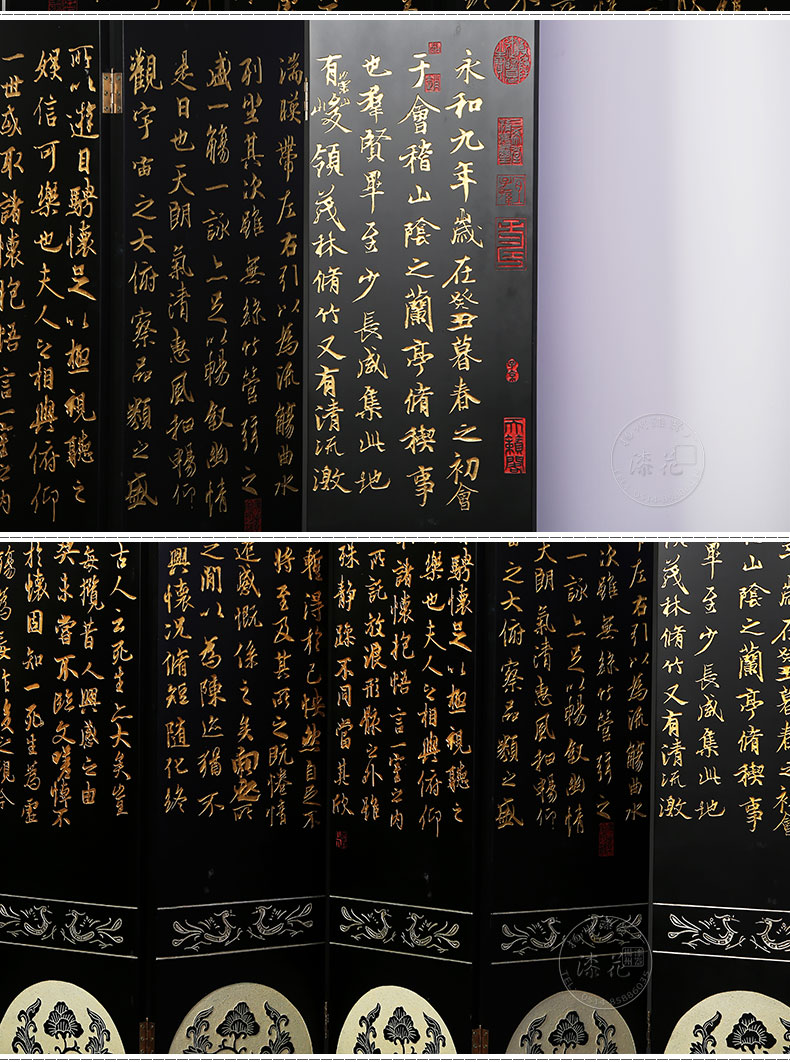 永和九年歲在癸丑暮春之初會
于會稽山陰之蘭亭脩稧事
也羣賢畢至少長咸集此地
有崇山峻領茂林脩竹又有清流激
湍暎帶左右引以為流觴曲水
列坐其次雖無絲竹管弦之
盛一觴一詠亦足以暢叙幽情
是日也天朗氣清惠風和暢仰
觀宇宙之大俯察品類之盛
所以遊目騁懷足以極視聽之
娛信可樂也夫人之相與俯仰
一世或取諸懷抱悟言一室之內
年歲在癸丑暮春之初會
山陰之蘭亭脩稧事
畢至少長咸集此地
領茂林脩竹又有清流激
帶左右引以為流觴曲水
次雖無絲竹管弦之
一詠亦足以暢叙幽情
天朗氣清惠風和暢仰
宙之大俯察品類之盛
騁懷足以極視聽之
樂也夫人之相與俯仰
諸懷抱悟言一室之內
所託放浪形骸之外雖
殊靜躁不同當其欣
暫得於己快然自足不
將至及其所之既惓情
遷感慨係之矣向之所
之閒以為陳迹猶不
興懷況脩短隨化終
古人云死生亦大矣豈
每攬昔人興感之由
契未嘗不臨文嗟悼不
於懷固知一死生為虛
殤為妄作後之視今
漆花
漆花